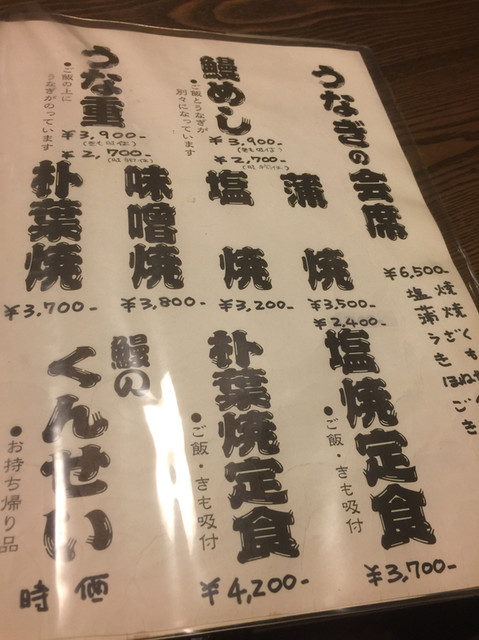 うなぎの会席
¥6,500-
塩焼
蒲焼
うざく
鰻めし
●ご飯とうなぎが
別々になっています
¥3,900-
¥2,700-
うな重
●ご飯の上に
うなぎがのっています
¥3,900-
¥2,700-
蒲焼
¥3,500-
¥2,400-
塩焼
¥3,200-
味噌焼
¥3,800-
朴葉焼
¥3,700-
塩焼定食
●ご飯・きも吸付
¥3,700-
朴葉焼定食
●ご飯・きも吸付
¥4,200-
鰻の
くんせい
●お持ち帰り品
時価